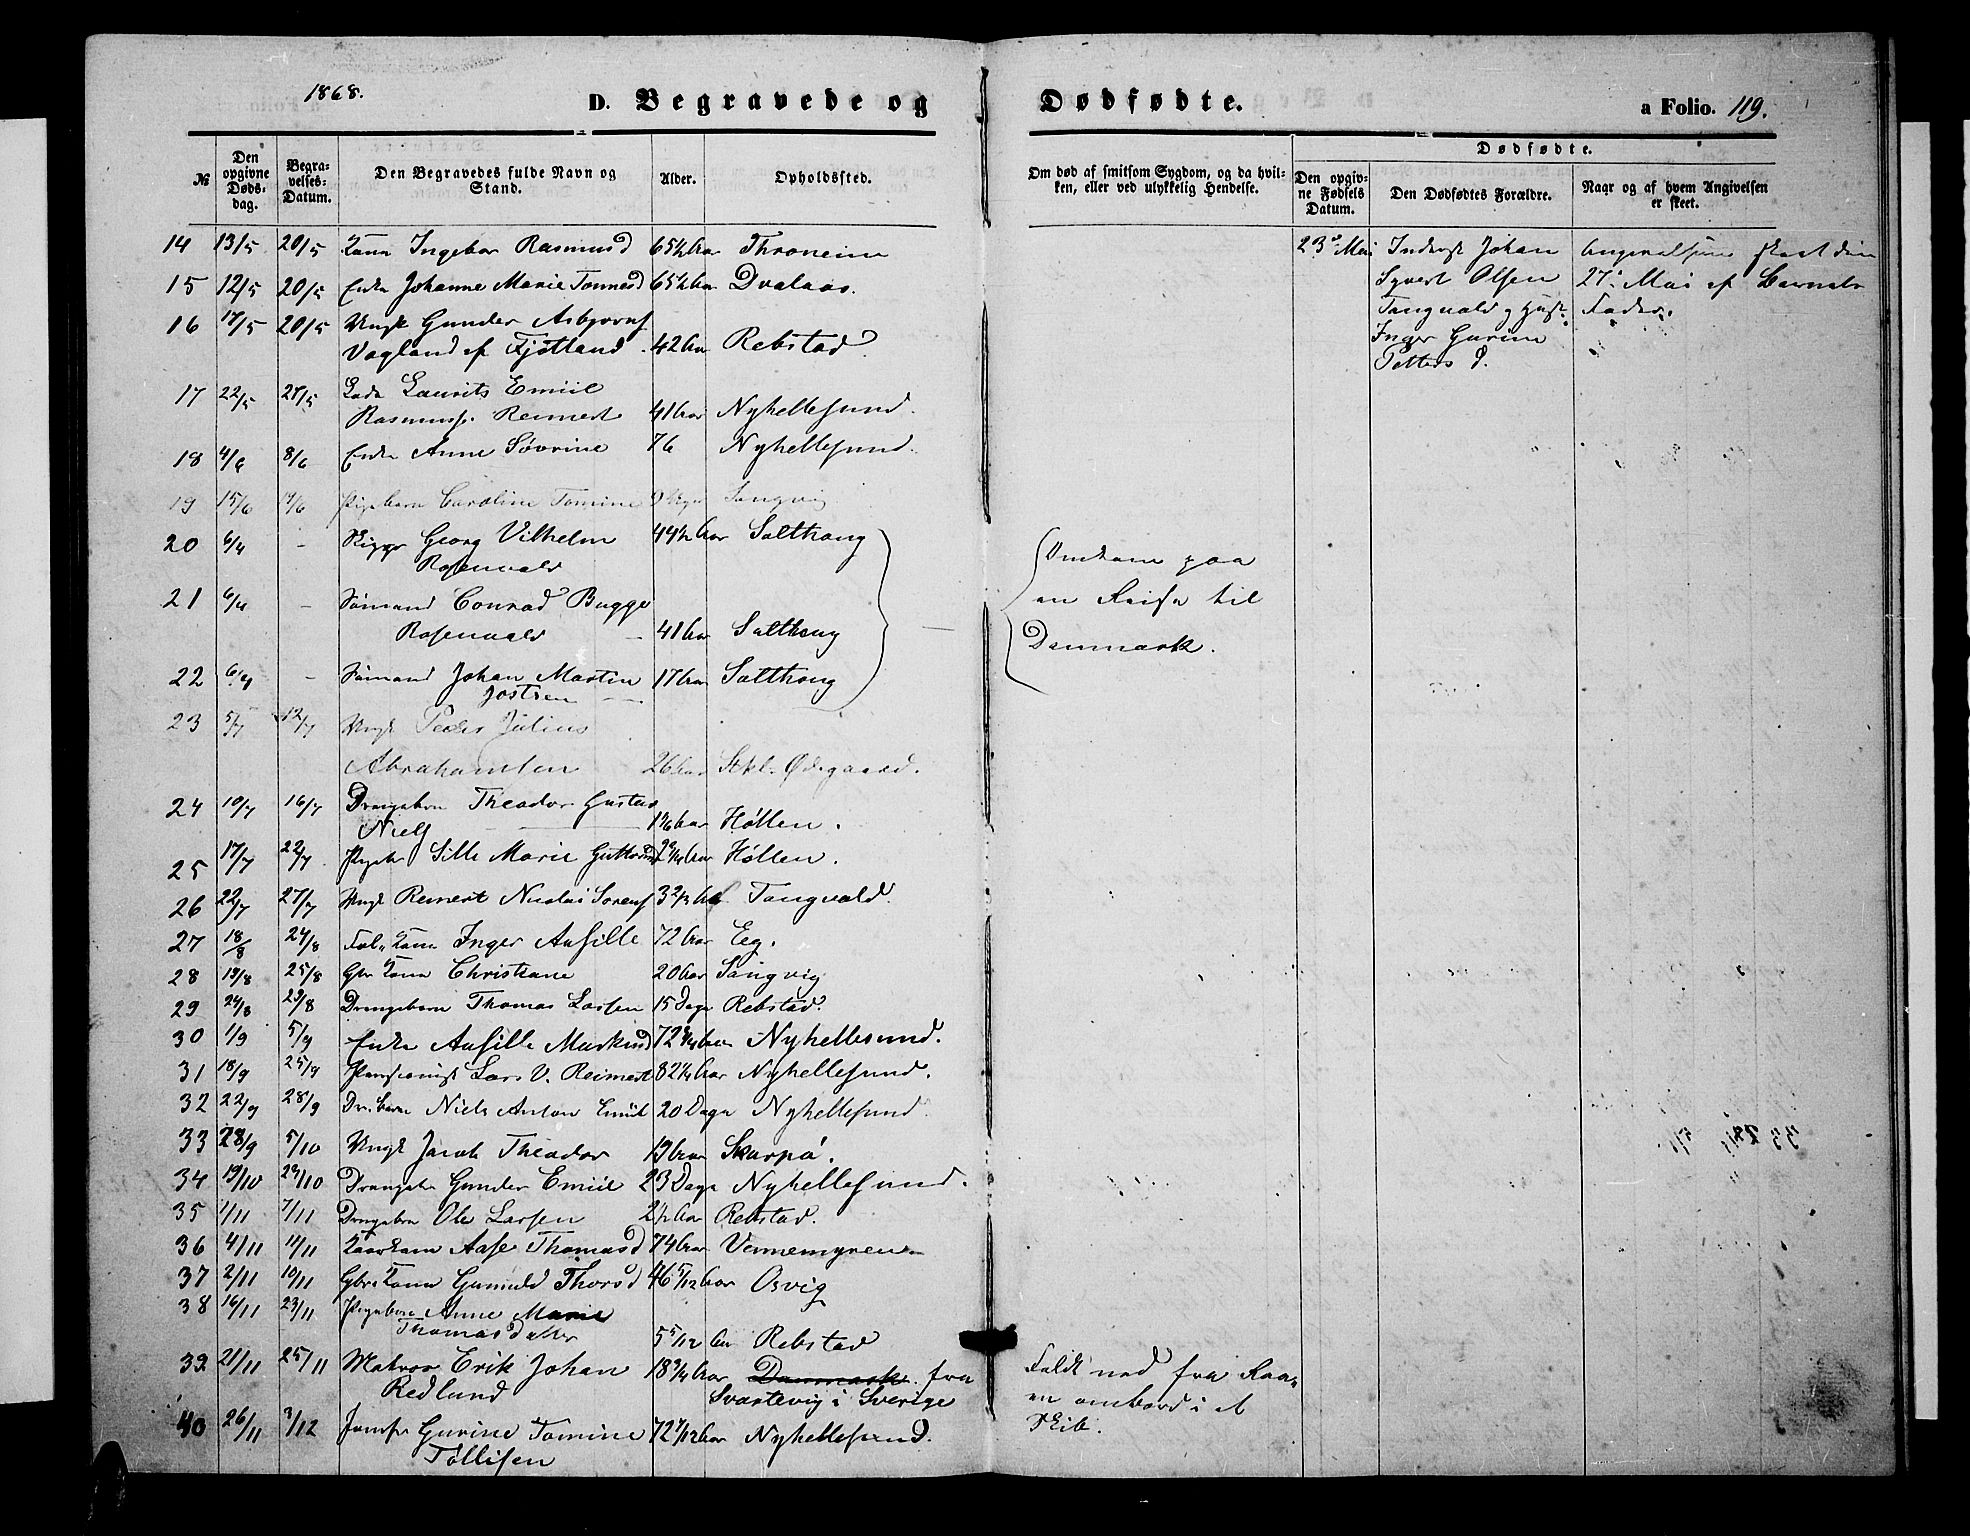 1868.
D. Begravede og Dødfødte.
a Folio. 119.
№
Den opgivne Døds-dag.
Begra-velses-Datum.
Den Begravedes fulde Navn og Stand.
Alder.
Opholdssted.
Om død af smitsom Sygdom, og da hvil-ken, eller ved ulykkelig Hendelse.
Dødfødte.
Den opgiv-ne Fødsels Datum.
Den Dødfødtes Forældre.
Naar og af hvem Angivelsen er skeet.
14 13/5 20/5 Kone Ingebor Rasmusd 65½ Aar Throneim
15 12/5 20/5 Enke Johanne Marie Tonnesd 65½ Aar Dvalaas.
16 14/5 20/5 Ungk Gunder Asbjørns
Vogland af Fjotland 42 Aar Rebstad
17 22/5 28/5 Lods Laurits Emiil
Rasmuss. Reinert 41 Aar Nyhellesund.
18 4/6 8/6 Enke Anne Sovrine 76 Nyhellesund.
19 15/6 19/6 Pigebarn Caroline Tomine Sangvig
20 6/4 - Georg Vilhelm 49½ Aar Salthong
Rosenvald
21 6/4 - Sømand Conrad Bugge
Rosenvald 41 Aar Salthong
22 6/4 - Sømand Johan Martin 17 Aar Salthong
Jostsen
Omkom paa
en Reise til
Danmark.
23 5/7 12/7 Ungk Peder Julius
Abrahamsen 26 Aar Stkl. Ødegaard.
24 10/7 16/7 Drengebrn Theador Gustav
Niels Aar Høllen.
25 17/7 22/7 Pigebr Sille Marie Aar Høllen.
26 22/7 27/7 Ungk Reinert Nicolai Sorens 32 Tangvald.
27 18/8 24/8 Fol. Kone Inger Aasille 72 Aar Eeg.
28 19/8 25/8 Gbr Kone Christiane 20 Aar Sangvig
29 24/8 29/8 Drengebarn Thomas Larsen 15 Dage Rebstad.
30 1/9 5/9 Enke Aasille Markusd 72 Aar Nyhellesund.
31 18/9 25/9 Pensionist Lars V. Reimert 82¼ Aar Nyhellesund.
32 22/9 28/9 Dr.barn Niels Anton Emiil 20 Dage Nyhellesund
33 28/9 5/10 Ungk Jacob Theador 19 Aar Skarpø.
34 19/10 29/10 Drengebr Gunder Emiil 23 Dage Nyhellesund.
35 1/11 7/11 Drengebrn Ole Larsen 2½ Aar Rebstad.
36 4/11 11/11 Kaarkone Aase Thomasd 74 Aar Vennemyren
37 2/11 10/11 Gbr Kone Gunuld Thorsd 46 5/12 Aar Osvig
38 16/11 23/11 Pigebarn Anne Marie
Thomasdatter 5 5/12 Aar Rebstad
39 21/11 25/11 Matros Erik Johan 18¾ Aar Danmark. fra
Redlund Svartevig i Sverige
Faldt ned fra Raa-
en ombord i et
Skib.
40 26/11 3/12 Jomfr Gurine Tomine 72 7/12 Aar Nyhellesund.
Tollisen
23de Mai
Inderst Johan
Syvert Olsen
Tangvald og Hust.
Inger Gurine
Petters d.
Angivelsen skeet den
27. Mai af Barnets
Fader.